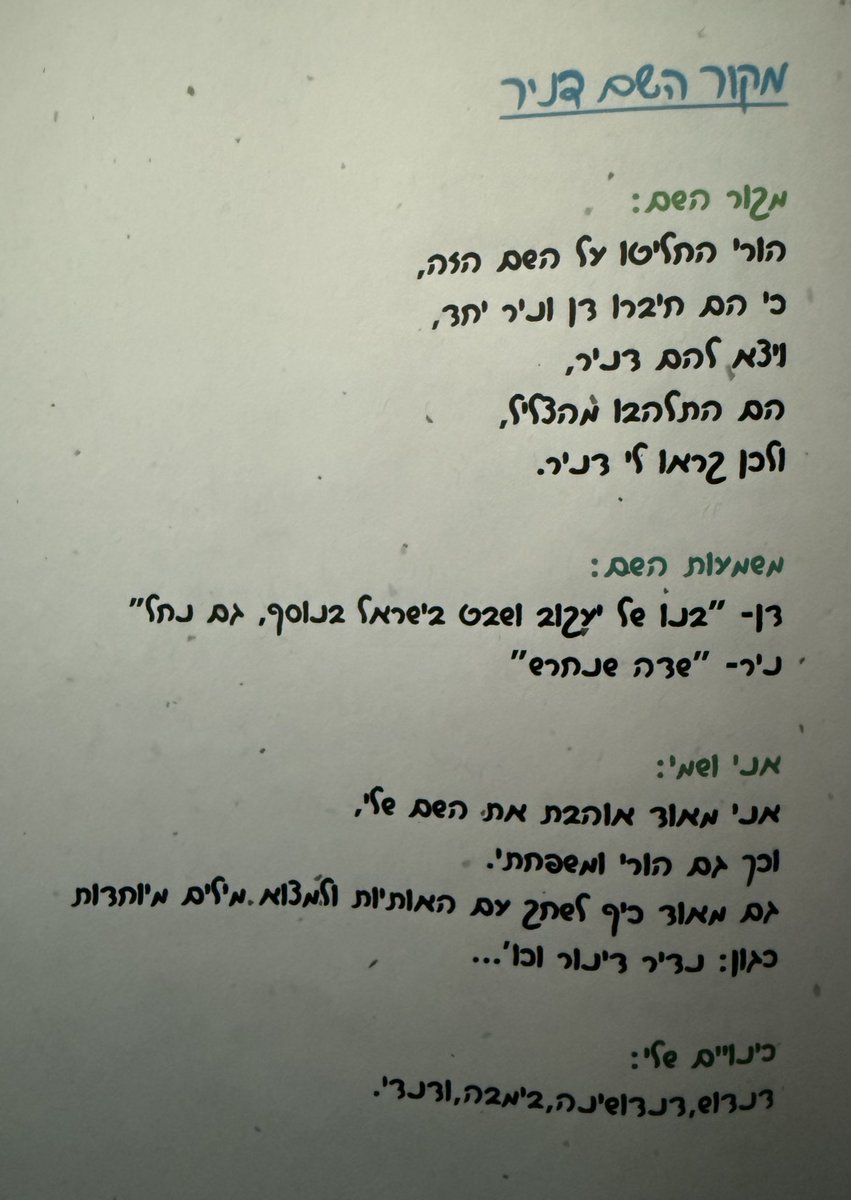 מקור השם דניר
מקור השם:
הורי החליטו על השם הזה,
כי הם חיברו דן וניר יחד,
ויצא להם דניר,
הם התלהבו מהצליל,
ולכן קראו לי דניר.
משמעות השם:
דן- "בנו של יעקוב ושבט בישראל בנוסף, גם נחל"
ניר- "שדה שנחרש"
אני ושמי:
אני מאוד אוהבת את השם שלי,
וכך גם הורי ומשפחתי.
גם מאוד כיף לשחק עם האותיות ולמצוא מילים מיוחדות
כגון: נדיר דינור וכו'...
כינויים שלי:
דנדוש,דנדושינה,בימבה,ודנדי.